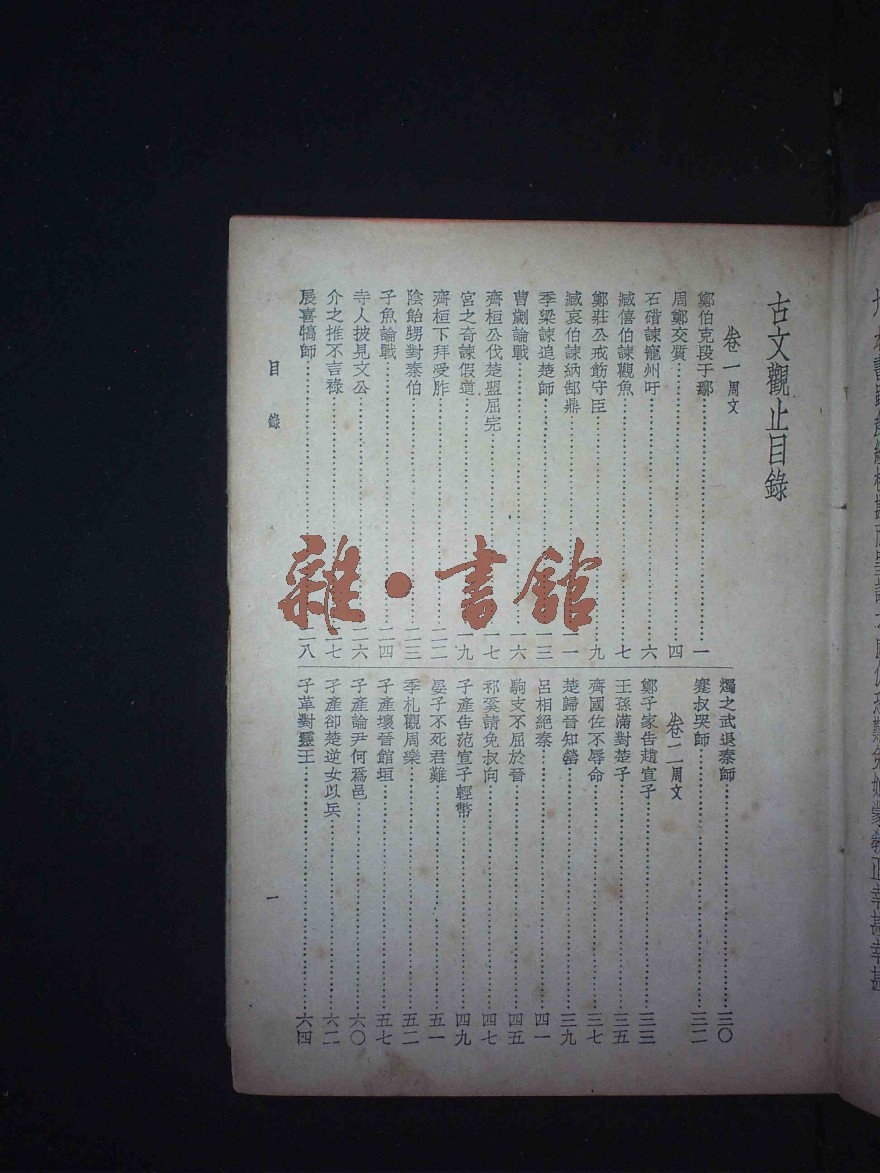 古文觀止目錄
卷一周文
鄭伯克段于鄢………一
周鄭交質………四
石碏諫寵州吁………六
臧僖伯諫觀魚………七
鄭莊公戒飭守臣………九
臧哀伯諫納郜鼎………一一
季梁諫追楚師………一三
曹劌論戰………一六
齊桓公伐楚盟屈完………一七
宮之奇諫假道………一九
齊桓下拜受胙………二二
陰飴甥對秦伯………二三
子魚論戰………二四
寺人披見文公………二六
介之推不言祿………二七
展喜犒師………二八
燭之武退秦師………三〇
蹇叔哭師………三二
卷二周文
鄭子家告趙宣子………三三
王孫滿對楚子………三五
齊國佐不辱命………三七
楚歸晉知罃………三九
呂相絕秦………四一
駒支不屈於晉………四五
祁奚請免叔向………四七
子產告范宣子輕幣………四九
晏子不死君難………五一
季札觀周樂………五二
子產壞晉館垣………五七
子產論尹何爲邑………六〇
子產卻楚逆女以兵………六二
子革對靈王………六四
目錄
一
雜·書館